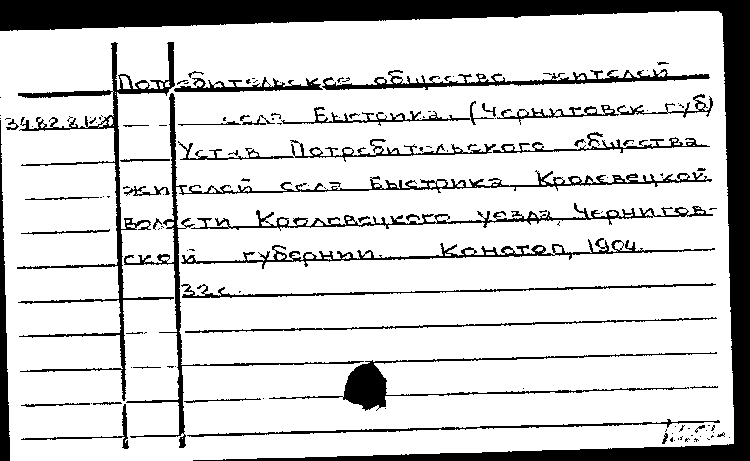 Потребительское общество жителей
села Быстрика. (Черниговск. губ)
34.82.8.1220
Устав Потребительского общества
жителей села Быстрика, Кролевецкой
волости, Кролевецкого уезда, Чернигов-
ской губернии. Конотоп, 1904.
32 с.